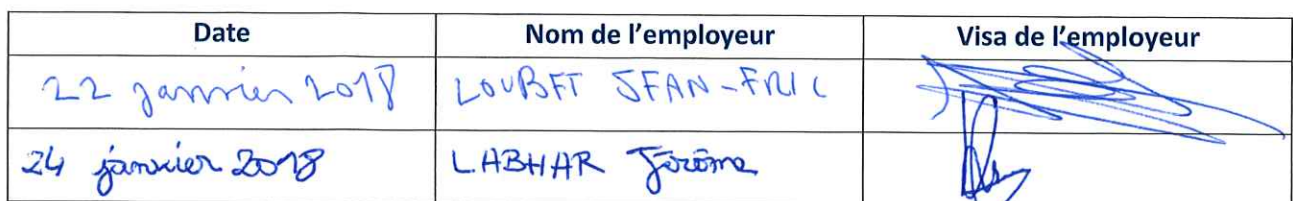 Date Nom de l'employeur Visa de l'employeur
22 janvier 2018 LOUBET JEAN-ERIC
24 janvier 2018 LABHAR Jérôme